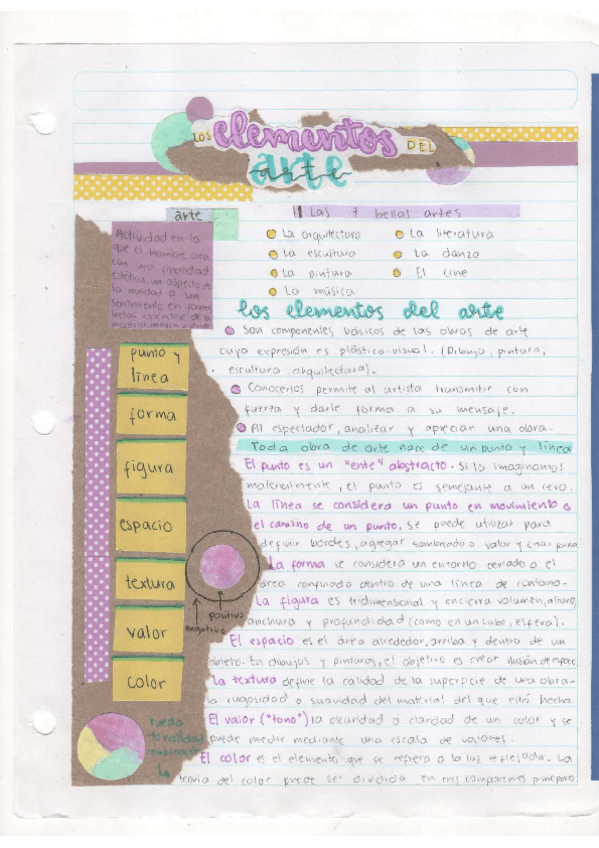 LOS elementos DEL
arte
arte
Actividad en la
que el hombre crea
con una finalidad
estética, un aspecto de
la realidad o un
sentimiento en formas
bellas valiéndose de la
materia, imagen o sonido
11 Las 7 bellas artes
La arquitectura
La literatura
La escultura
La danza
La pintura
El cine
La música
los elementos del arte
Son componentes básicos de las obras de arte
cuya expresión es plástico-visual. (Dibujo, pintura,
escultura, arquitectura).
Conocerlos permite al artista transmitir con
fuerza y darle forma a su mensaje.
Al espectador, analizar y apreciar una obra.
Toda obra de arte nace de un punto y línea
El punto es un "ente" abstracto. Si lo imaginamos
materialmente, el punto es semejante a un cero.
La línea se considera un punto en movimiento o
el camino de un punto. se puede utilizar para
definir bordes, agregar sombreado o valor y crear forma
La forma se considera un entorno cerrado o el
área confinado dentro de una línea de contorno.
La figura es tridimensional y encierra volumen, altura,
anchura y profundidad (como en un cubo, esfera).
El espacio es el área alrededor, arriba y dentro de un
objeto. En dibujos y pinturas, el objetivo es crear ilusión de espacio.
La textura define la calidad de la superficie de una obra-
la rugosidad o suavidad del material del que está hecha
El valor ("tono") la oscuridad o claridad de un color y se
puede medir mediante una escala de valores.
El color es el elemento que se refiere a la luz reflejada. La
teoría del color puede ser dividida en tres componentes principales
punto y
línea
forma
figura
espacio
textura
valor
color
positivo
negativo
rueda
tonalidad
combinación
La